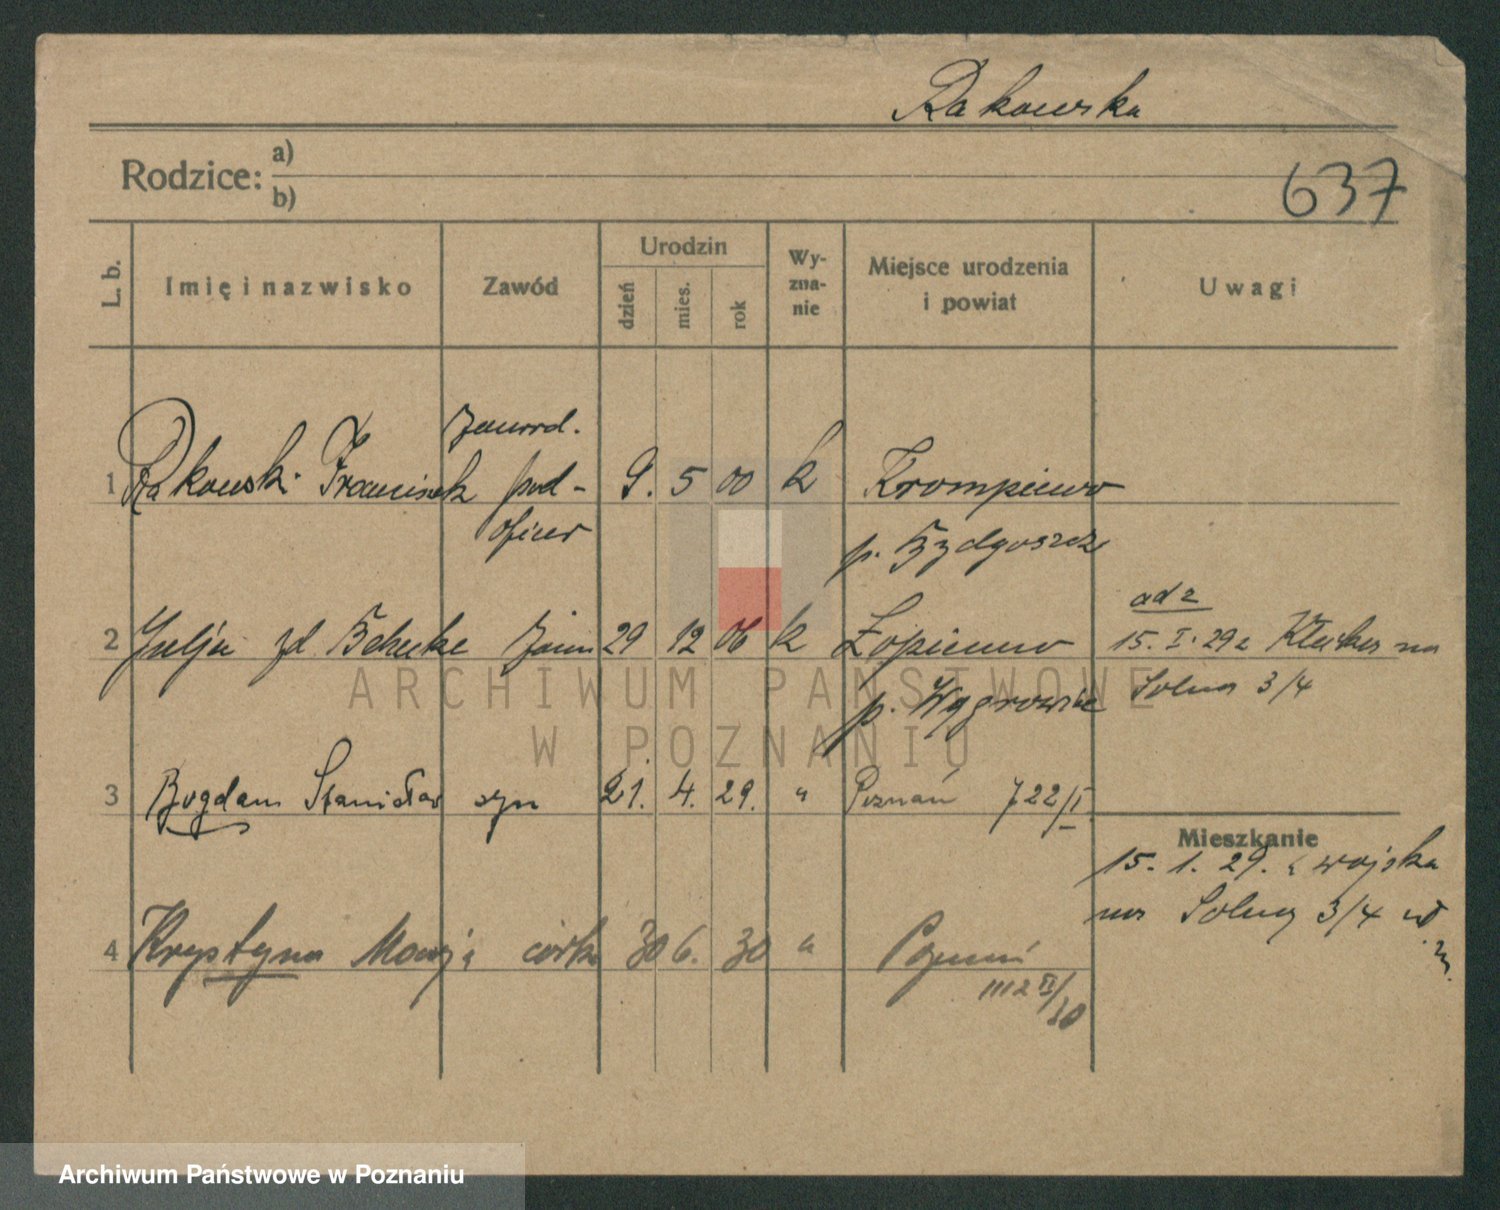 Rakowska
Rodzice: a)
b)
637
L. b.
Imię i nazwisko
Zawód
Urodzin
dzień
mies.
rok
Wy-
zna-
nie
Miejsce urodzenia
i powiat
Uwagi
zawod.
1 Rakowski Franciszek pod- 9. 5 00 k Krompiewo
oficer p. Bydgoszcz
ad 2
2 Julja zd żona 29 12 06 k Łopienno 15. I. 29 z Kłecka na
p. Wągrowiec Solna 3/4
3 Bogdan Stanisław syn 21. 4. 29. " Poznań 722/I
Mieszkanie
15. 1. 29. z wojska
na Solną 3/4
4 Krystyna Marja córka 30 6. 30 " Poznań
1112 II/30
ARCHIWUM PAŃSTWOWE
W POZNANIU
Archiwum Państwowe w Poznaniu